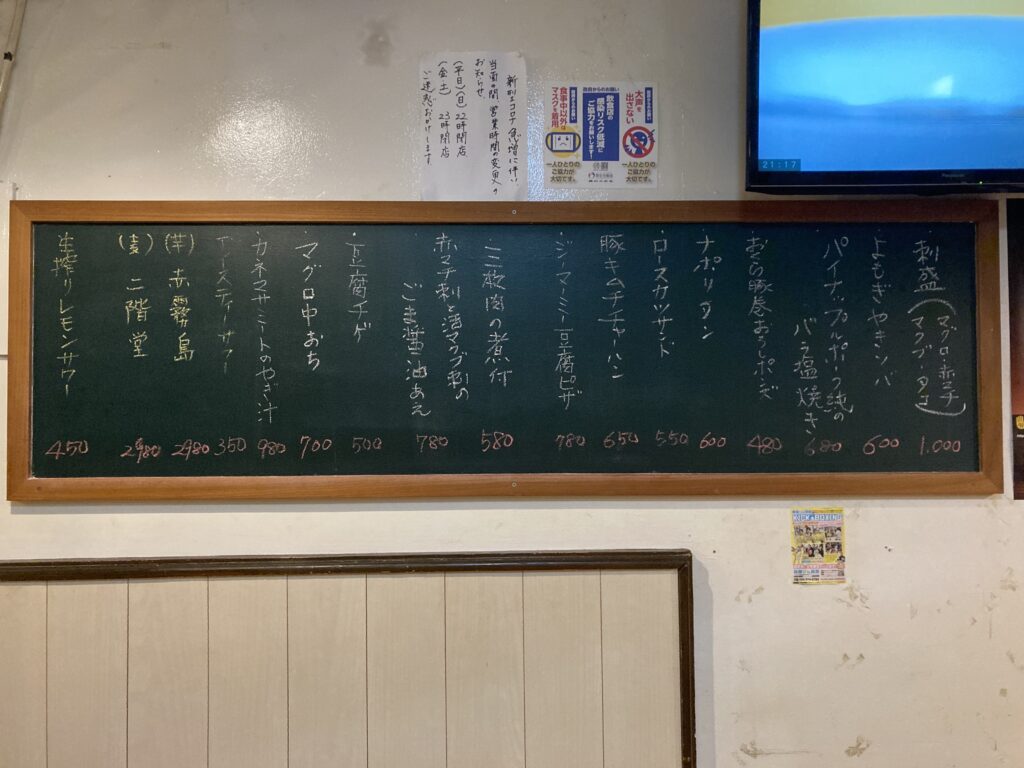 新型コロナ急増に伴い
当面の間、営業時間の変更の
お知らせ。
(平日)(日) 22時閉店
(金土) 23時閉店
ご迷惑おかけします
大声を
出さない
一人ひとりの
ご協力が
大切です。
飲食店の
感染リスク低減に
ご協力をお願いします!
食事中以外は
マスクを着用
一人ひとりの
ご協力が
大切です。
21:17
Panasonic
刺盛(マグロ・赤マチ
マクブ・タコ) 1.000
・よもぎやきソバ 600
・パイナップルポーク(純)の
バラ塩焼き 680
・おくら豚巻おろしポンズ 480
・ナポリタン 600
・ロースカツサンド 550
・豚キムチチャーハン 650
・ジーマーミー豆腐ピザ 780
・ミミ軟骨の煮付 580
・赤マチ刺と活マクブ刺の
ごま醤油あえ 780
・豆腐チゲ 500
・マグロ中おち 700
・カネマサミートのやぎ汁 980
・アイスティーサワー 350
(芋) 赤霧島 2980
(麦) 二階堂 2980
生搾りレモンサワー 450
KICK BOXING